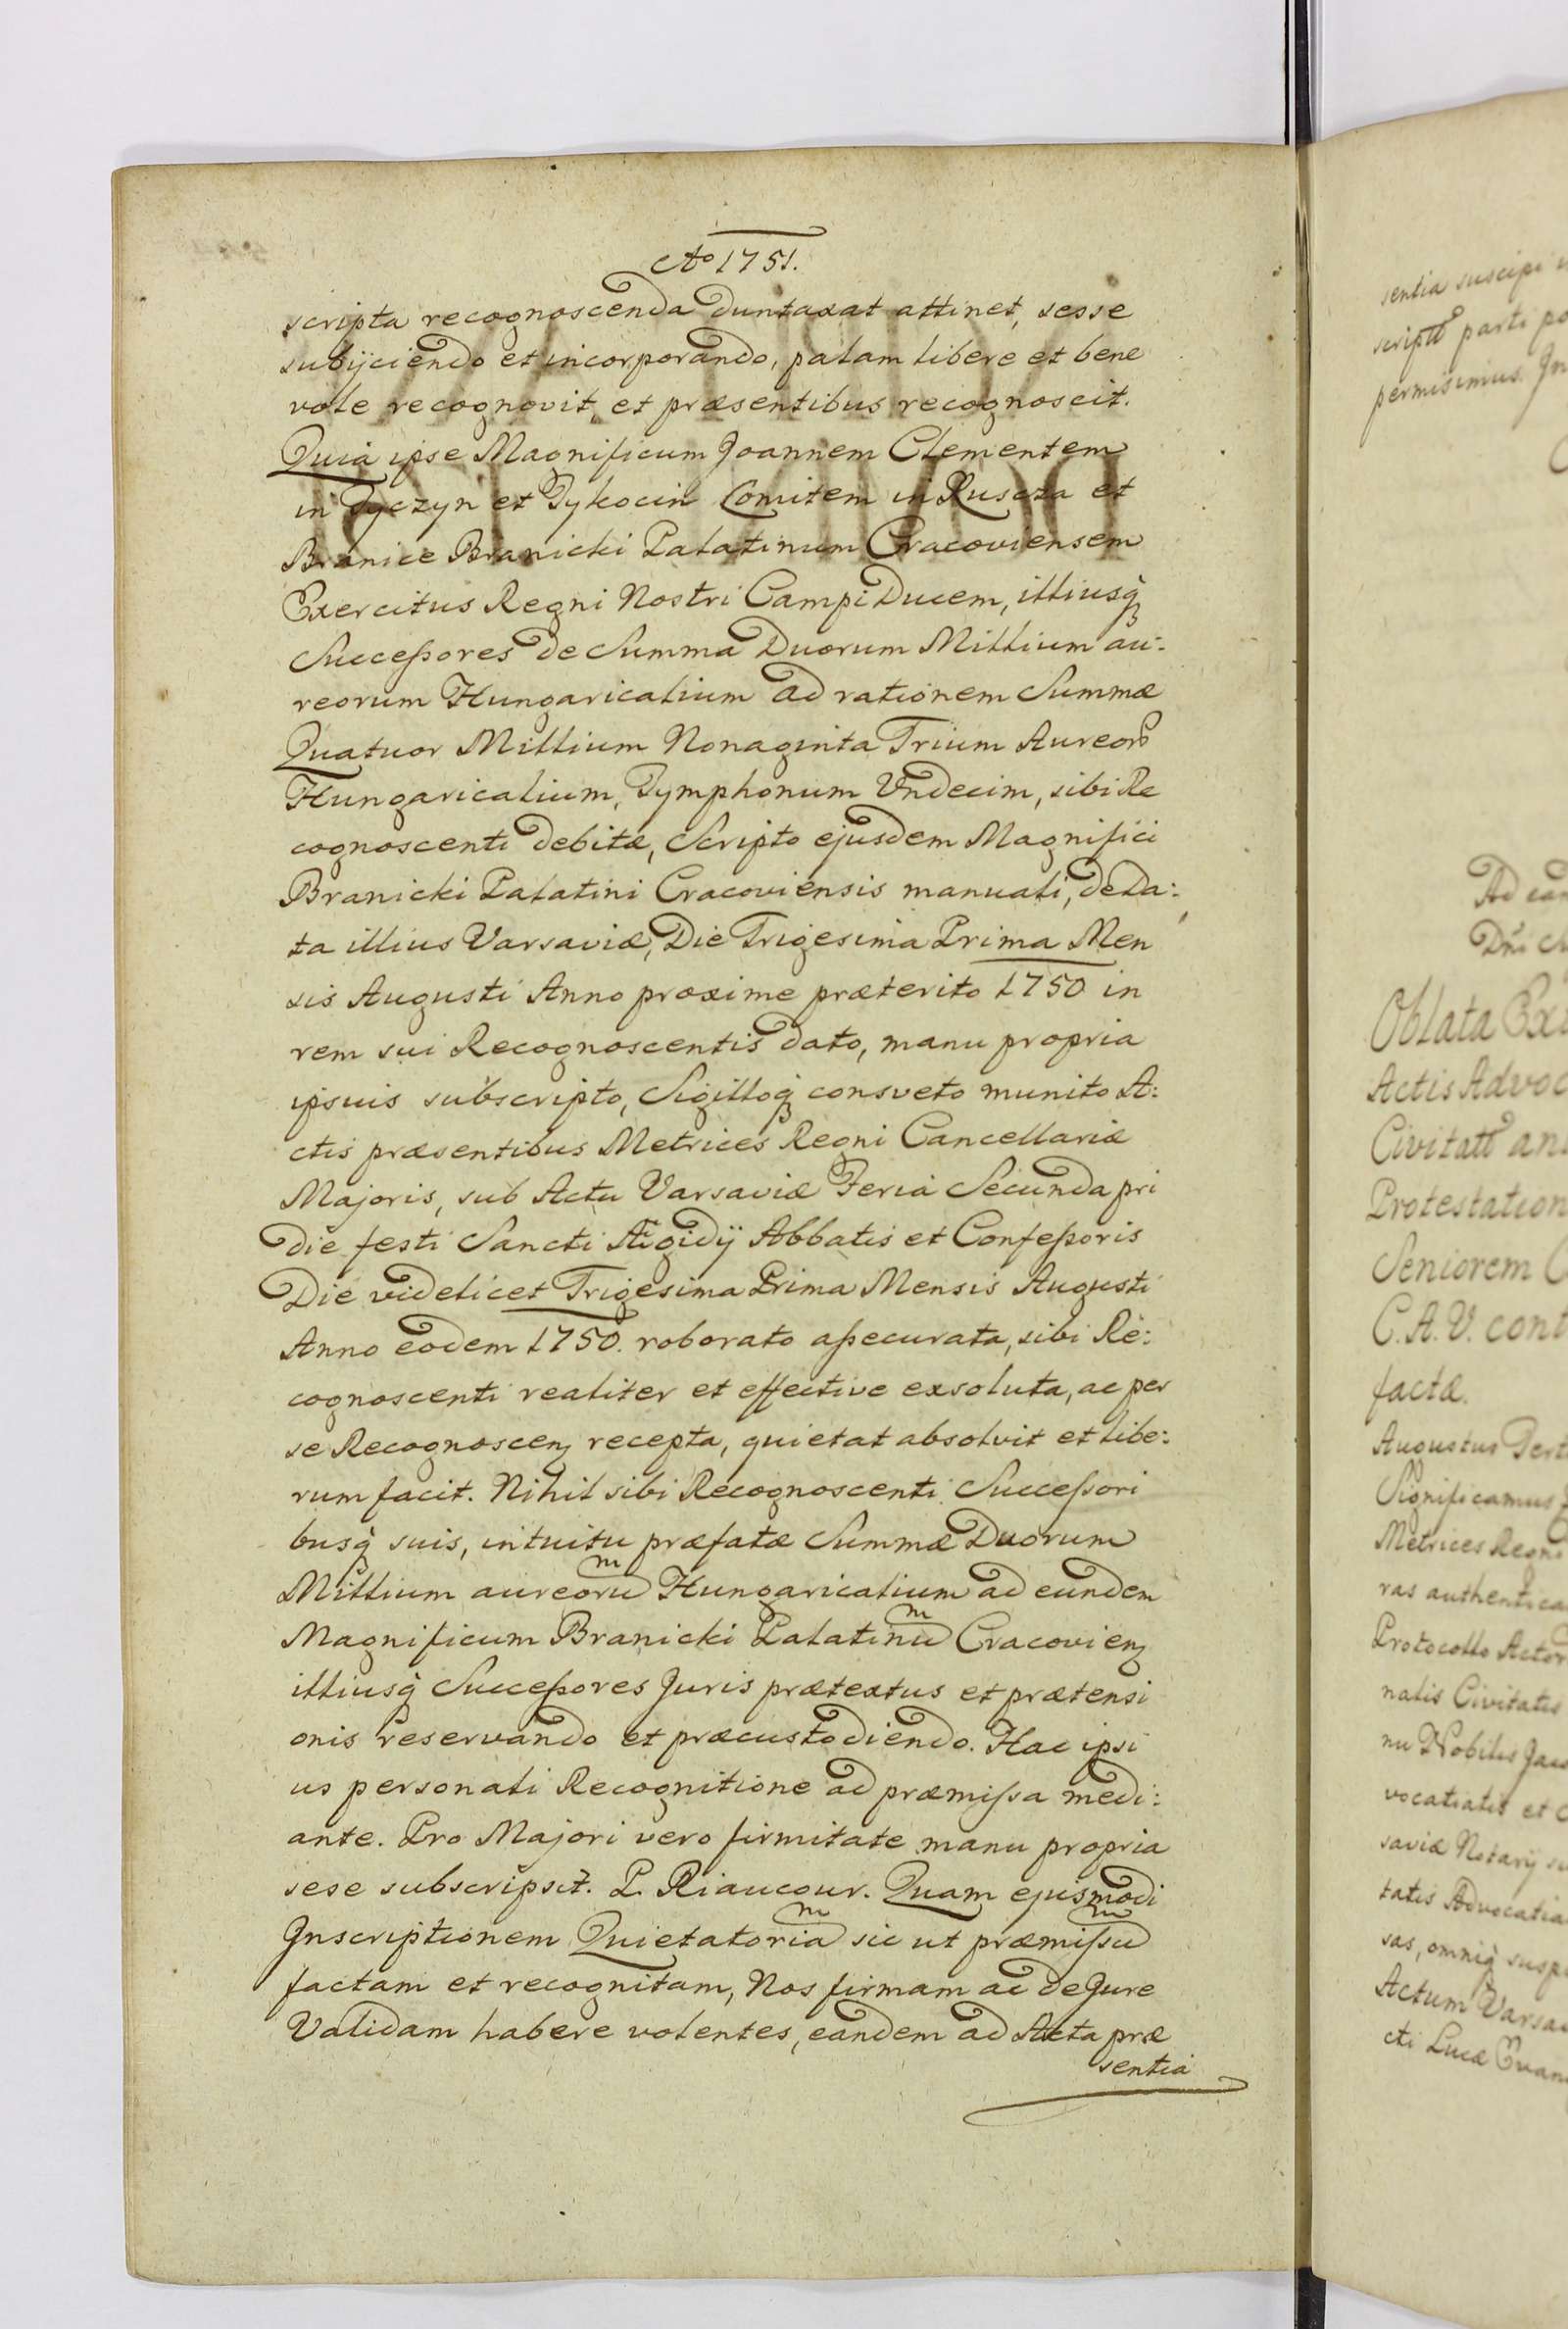 Ao 1751.
scripta recognoscenda duntaxat attinet, sesse
subijciendo et incorporando, palam libere et bene
vole recognovit, et præsentibus recognoscit.
Quia ipse Magnificum Joannem Clementem
in Tyczyn et Tykocin Comitem in Ruszcza et
Branice Branicki Palatinum Cracoviensem
Exercitus Regni Nostri Campi Ducem, illiusq
Successores de Summa Duorum Millium au:
reorum Hungaricalium ad rationem Summæ
Quatuor Millium Nonaginta Trium Aureor
Hungaricalium, Tymphonum Undecim, sibi Re
cognoscenti debitæ, Scripto ejusdem Magnifici
Branicki Palatini Cracoviensis manuali, de Da:
ta illius Varsaviæ, Die Trigesima Prima Men
sis Augusti Anno proxime præterito 1750 in
rem sui Recognoscentis dato, manu propria
ipsuis subscripto, Sigilloq consveto munito A:
ctis præsentibus Metrices Regni Cancellariæ
Majoris, sub Actu Varsaviæ Feria Secunda pri
die festi Sancti Ægidij Abbatis et Confessoris
Die videlicet Trigesima Prima Mensis Augusti
Anno eodem 1750. roborato assecurata, sibi Re:
cognoscenti realiter et effective exsoluta, ac per
se Recognoscen recepta, quietat absolvit et libe:
rum facit. Nihil sibi Recognoscenti Successori
busq suis, intuitu præfatæ Summæ Duorum
Millium aureorum Hungaricalium ad eundem
Magnificum Branicki Palatinum Cracovien
illiusq Successores Juris prætextus et prætensi
onis reservando et præcustodiendo. Hac ipsi
us personali Recognitione ad præmissa medi:
ante. Pro Majori vero firmitate manu propria
sese subscripsit. P. Riaucour. Quam ejusmodi
Inscriptionem Quietatoriam sic ut præmissum
factam et recognitam, Nos firmam ac de Jure
Validam habere volentes, eandem ad Acta præ
sentia
sentia suscipi
script parti
permisimus.
Oblata
Actis
Civitatt
Protestation
Seniorem
C. A. V. cont
factæ.
Augustus
Significamus
Metrices Regni
ras authentica
Protocollo
nalis Civitatis
Nobilis
vocatialis et
saviæ Notarij
tatis Advocatia
sas, omniq
Actum Varsa
cti Lucæ Evan